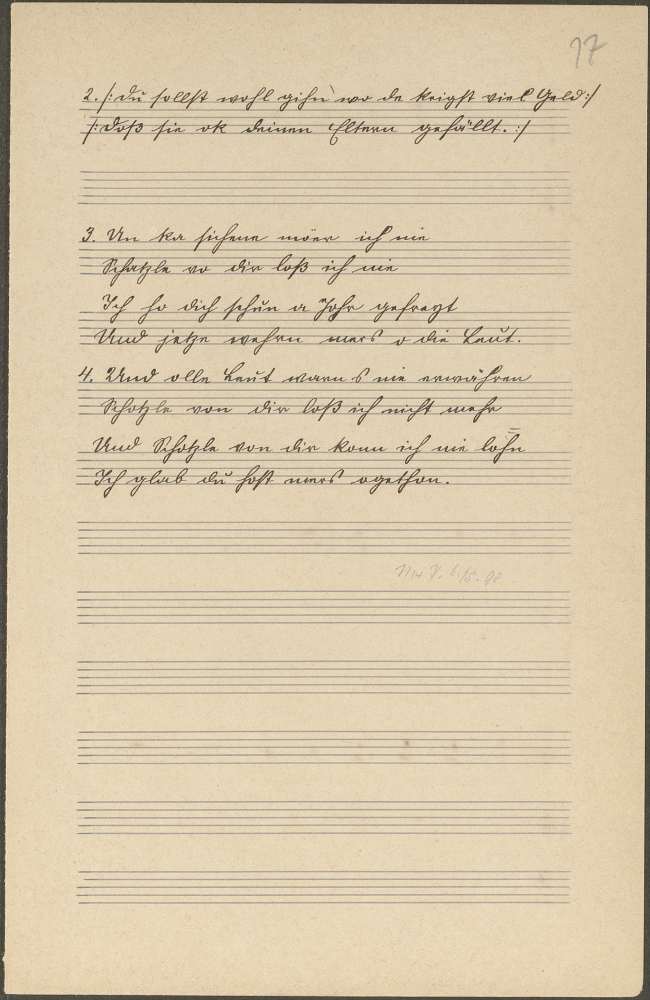 17
2. /: Du sollst wohl gihn wo de keigst viel Geld :/
/: Doß sie ok deinen Eltern gefällt. :/
3. Un ka sichene möer ich nie
Schatzle vo dir loß ich nie
Ich ho dich schun a Johr gefregt
Und jetze wehrn mers o die Leut.
4. Und olle Leut warn s nie erwähren
Schotzle von dir loß ich nicht mehr
Und Schotzle von dir konn ich nie lohn
Ich glab du host mers ogethon.